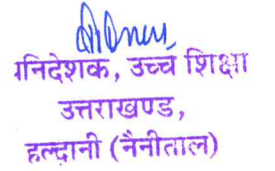 निदेशक, उच्च शिक्षा
उत्तराखण्ड,
हल्द्वानी (नैनीताल)